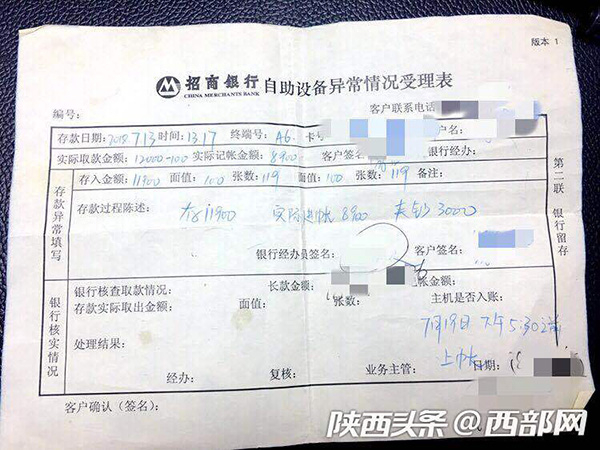 版本 1
招商银行 自助设备异常情况受理表
CHINA MERCHANTS BANK
编号: 客户联系电话
存款日期: 2018 7 13 时间: 13 17 终端号: A6. 卡号 户名:
实际取款金额: 12000-100 实际记帐金额: 8900 客户签名 银行经办:
存入金额: 11900 面值: 100 张数: 119 面值: 100 张数: 119 备注:
存款异常填写
存款过程陈述: 存11900 实际进帐8900 夹钞3000
银行经办员签名: 客户签名:
第二联 银行留存
银行核实情况
银行核查取款情况: 长款金额: 帐金额:
存款实际取出金额: 面值: 张数: 主机是否入账:
7月19日 下午5:30之前
处理结果: 上帐
经办: 复核: 业务主管: 日期:
客户确认(签名):
陕西头条@西部网